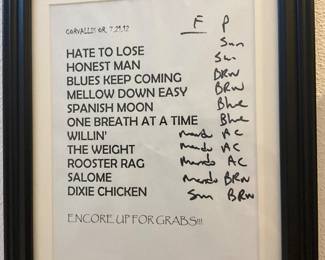 CORVALLIS OR, 7.29.12
E P
HATE TO LOSE Sun
HONEST MAN Sun
BLUES KEEP COMING BRN
MELLOW DOWN EASY BRN
SPANISH MOON Blue
ONE BREATH AT A TIME Blue
WILLIN' Mando AC
THE WEIGHT Mando AC
ROOSTER RAG Mando AC
SALOME Mando BRN
DIXIE CHICKEN Sun BRN
ENCORE UP FOR GRABS!!!